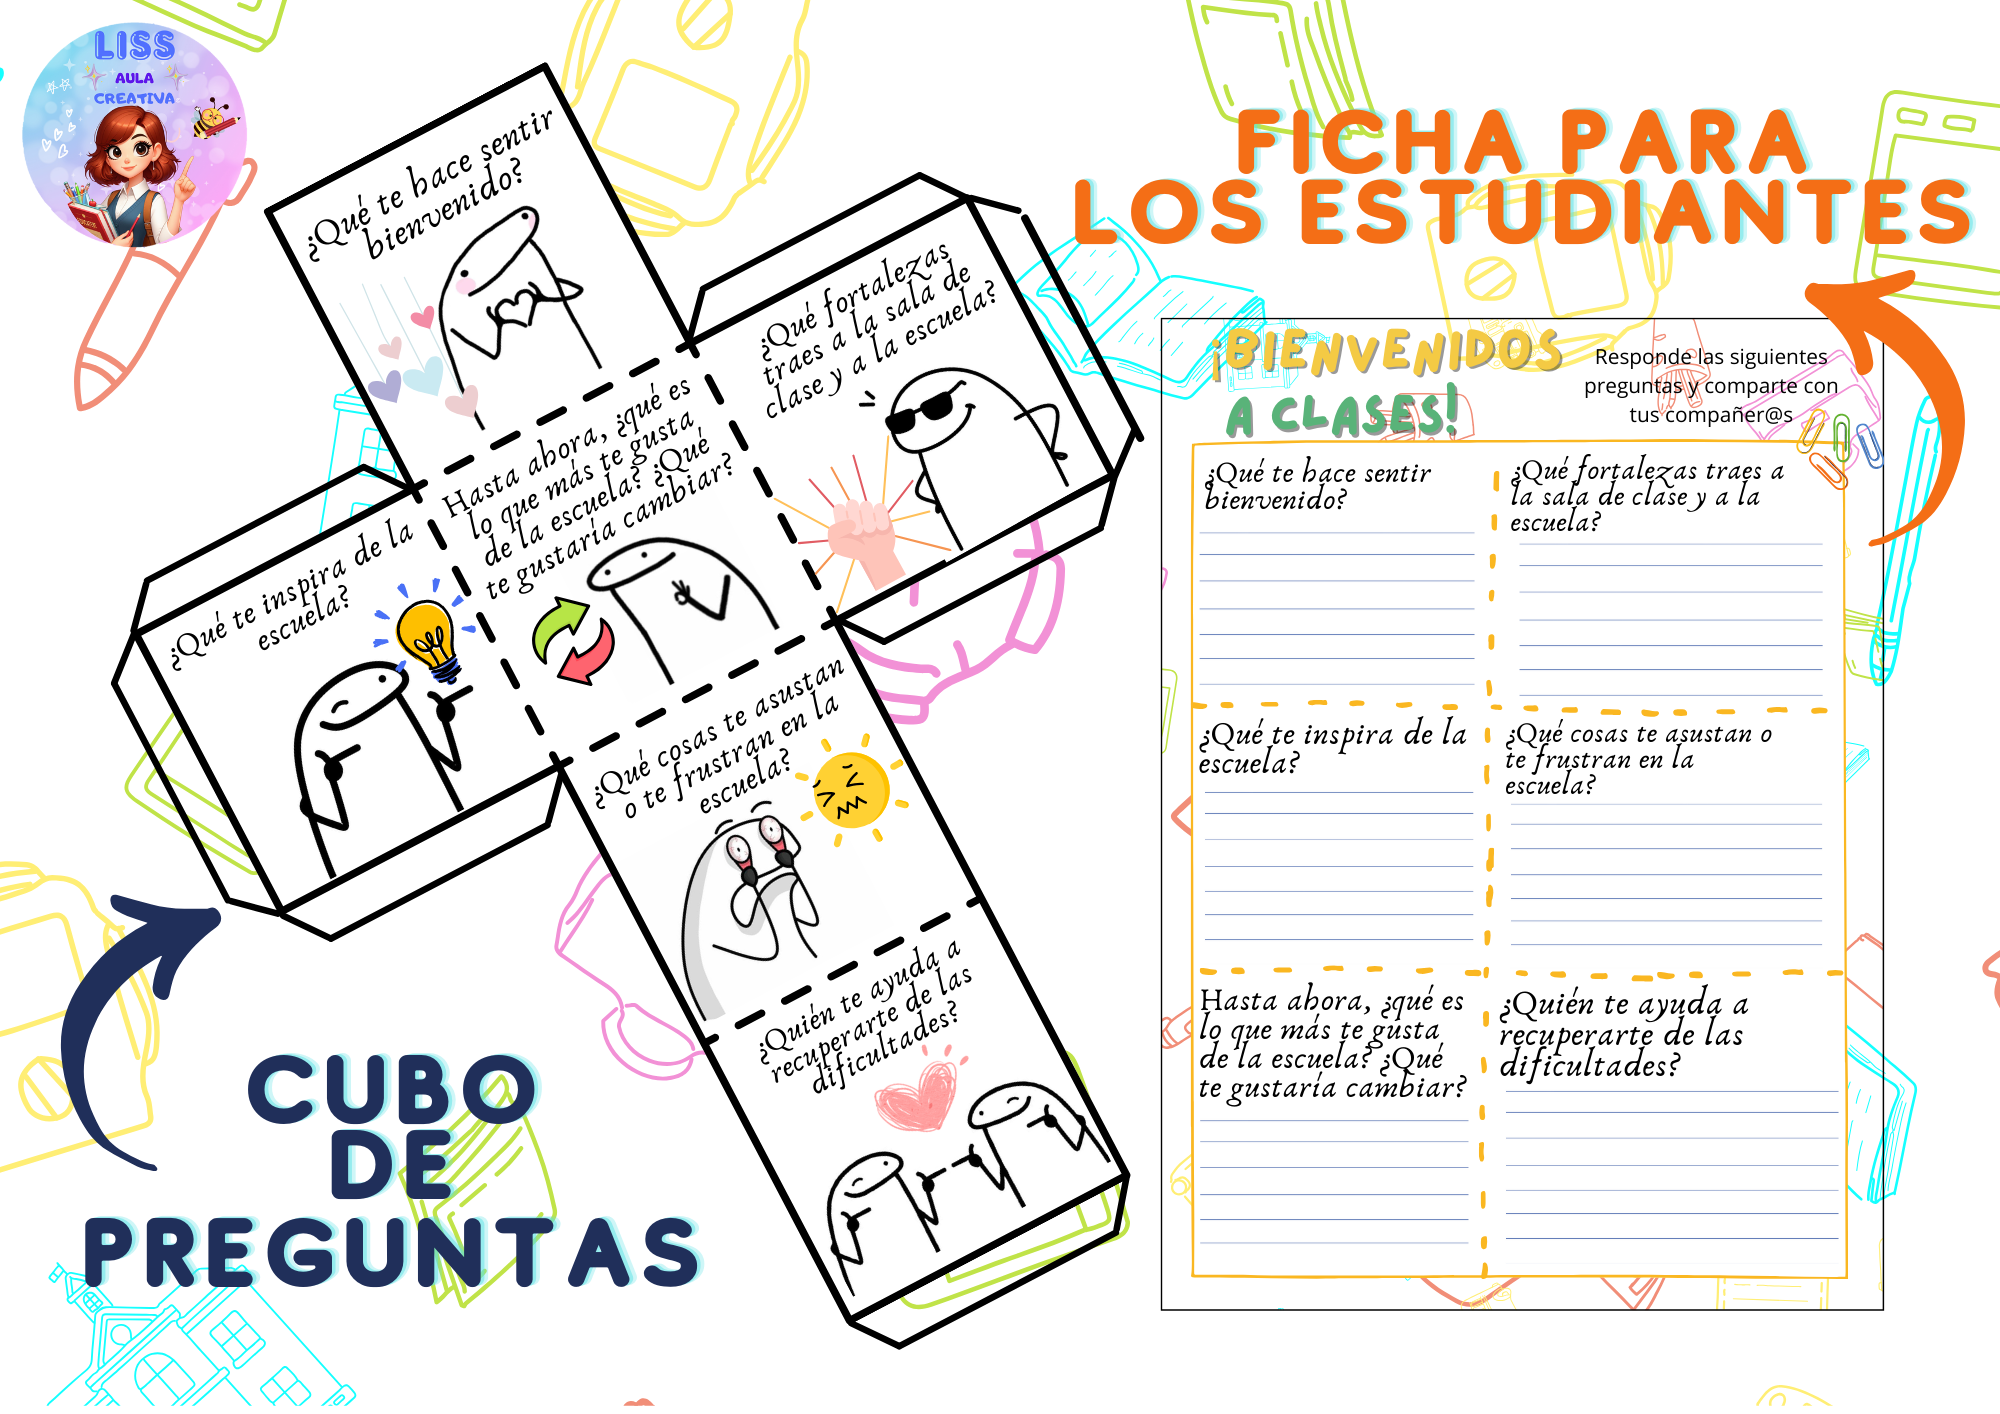 LISS
AULA
CREATIVA
¿Qué te hace sentir
bienvenido?
¿Qué fortalezas
traes a la sala de
clase y a la escuela?
Hasta ahora, ¿qué es
lo que más te gusta
de la escuela? ¿Qué
te gustaría cambiar?
¿Qué te inspira de la
escuela?
¿Qué cosas te asustan
o te frustran en la
escuela?
¿Quién te ayuda a
recuperarte de las
dificultades?
CUBO
DE
PREGUNTAS
FICHA PARA
LOS ESTUDIANTES
¡BIENVENIDOS
A CLASES!
Responde las siguientes
preguntas y comparte con
tus compañer@s
¿Qué te hace sentir
bienvenido?
¿Qué fortalezas traes a
la sala de clase y a la
escuela?
¿Qué te inspira de la
escuela?
¿Qué cosas te asustan o
te frustran en la
escuela?
Hasta ahora, ¿qué es
lo que más te gusta
de la escuela? ¿Qué
te gustaría cambiar?
¿Quién te ayuda a
recuperarte de las
dificultades?